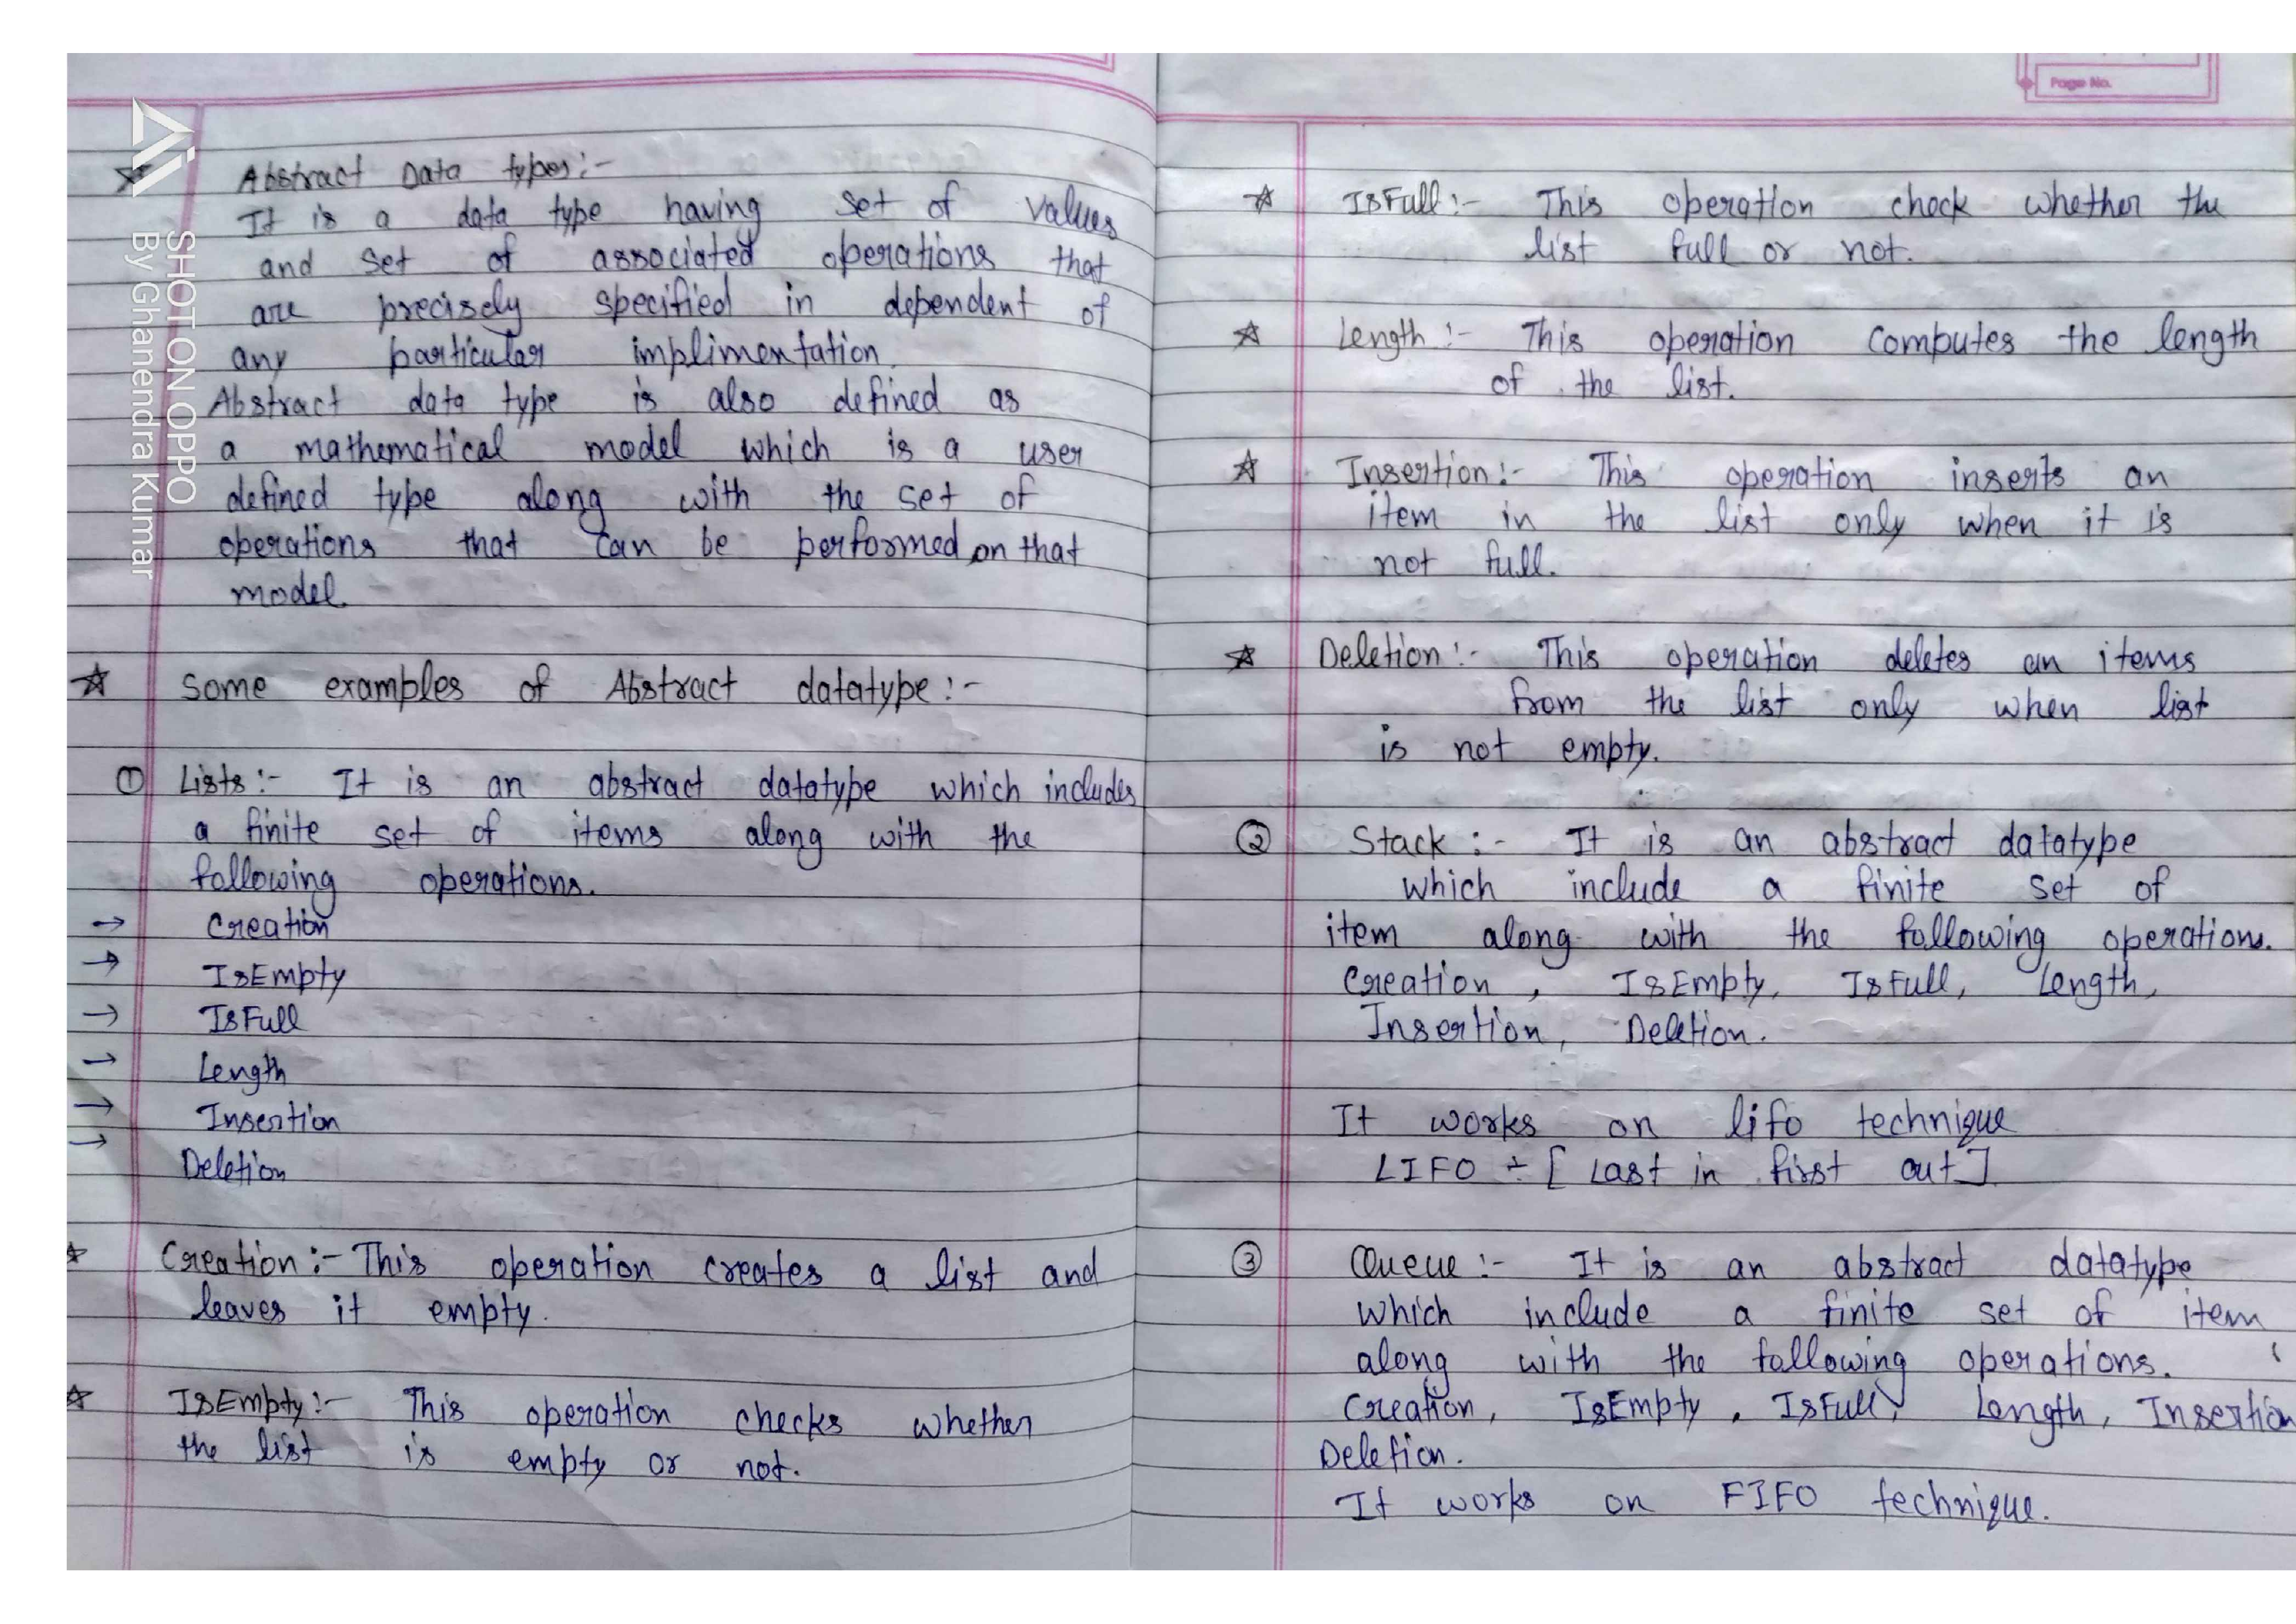 ☆ Abstract Data types:-
It is a data type having set of values
and set of associated operations that
are precisely specified in dependent of
any particular implimentation.
Abstract data type is also defined as
a mathematical model which is a user
defined type along with the set of
operations that can be performed on that
model.
☆ Some examples of Abstract datatype:-
① Lists:- It is an abstract datatype which includes
a finite set of items along with the
following operations.
→ Creation
→ IsEmpty
→ IsFull
→ Length
→ Insertion
→ Deletion
☆ Creation:- This operation creates a list and
leaves it empty.
☆ IsEmpty:- This operation checks whether
the list is empty or not.
SHOT ON OPPO
By Ghanendra Kumar
Page No.
☆ IsFull:- This operation check whether the
list full or not.
☆ Length:- This operation computes the length
of the list.
☆ Insertion:- This operation inserts an
item in the list only when it is
not full.
☆ Deletion:- This operation deletes an items
from the list only when list
is not empty.
② Stack:- It is an abstract datatype
which include a finite set of
item along with the following operations.
Creation, IsEmpty, IsFull, Length,
Insertion, Deletion.
It works on lifo technique
LIFO ÷ [ Last in first out ]
③ Queue:- It is an abstract datatype
which include a finite set of item
along with the following operations.
Creation, IsEmpty, IsFull, Length, Insertion
Deletion.
It works on FIFO technique.